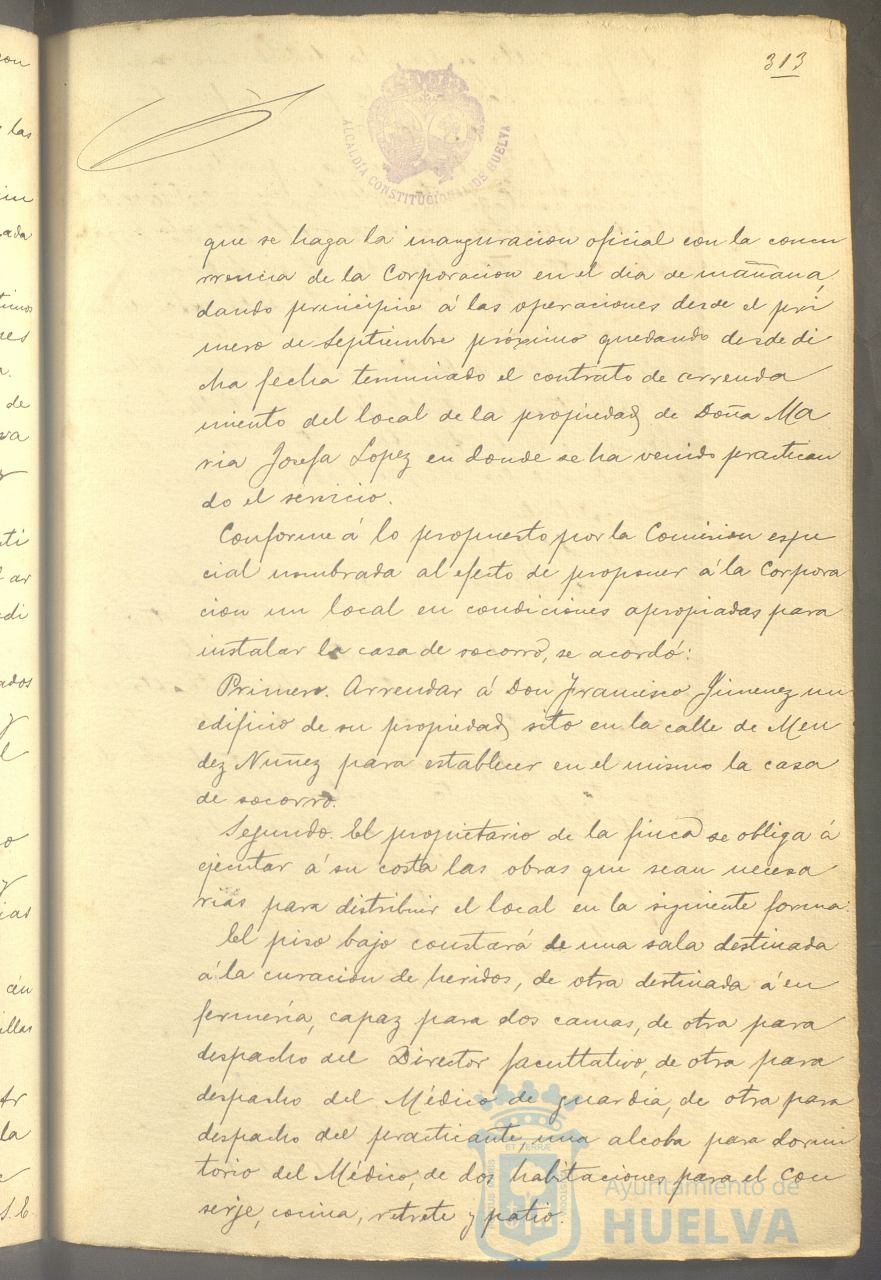 313
ALCALDÍA CONSTITUCIONAL DE HUELVA
que se haga la inauguracion oficial con la concu
rrencia de la Corporacion en el dia de mañana,
dando principio á las operaciones desde el pri
mero de Septiembre próximo quedando desde di
cha fecha terminado el contrato de arrenda
miento del local de la propiedad de Doña Ma
ria Josefa Lopez en donde se ha venido practican
do el servicio.
Conforme á lo propuesto por la Comision espe
cial nombrada al efecto de proponer á la Corpora
cion un local en condiciones apropiadas para
instalar la casa de socorro, se acordó:
Primero. Arrendar á Don Francisco Jimenez un
edificio de su propiedad sito en la calle de Men
dez Nuñez para establecer en el mismo la casa
de socorro.
Segundo. El propietario de la finca se obliga á
ejecutar á su costa las obras que sean necesa
rias para distribuir el local en la siguiente forma:
El piso bajo constará de una sala destinada
á la curacion de heridos, de otra destinada á en
fermería, capaz para dos camas, de otra para
despacho del Director facultativo, de otra para
despacho del Médico de guardia, de otra para
despacho del practicante, una alcoba para dormi
torio del Médico, de dos habitaciones para el Con
serje, cocina, retrete y patio.
Ayuntamiento de
HUELVA